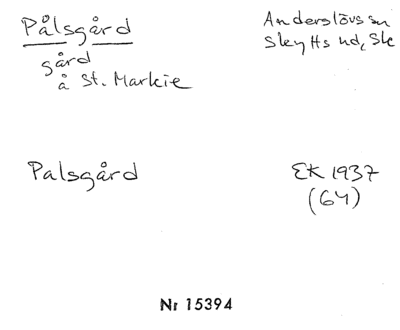 Pålsgård
Anderslövs sn
gård
Skytts hd, Sk
å St. Markie
Palsgård
EK 1937
(64)
Nr 15394